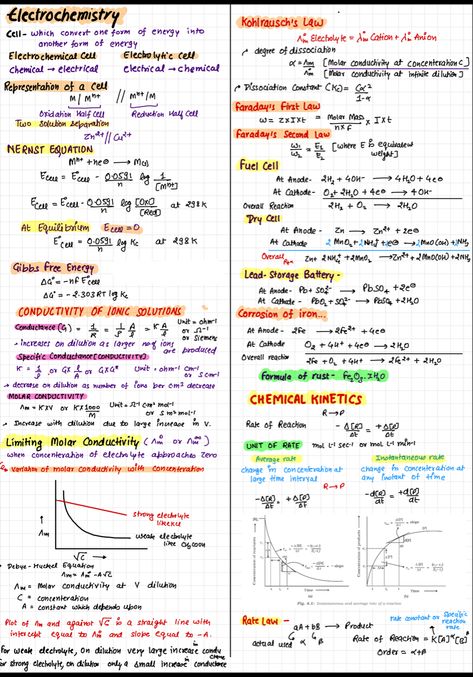 Electrochemistry
Cell - which convert one form of energy into
another form of energy
Electrochemical Cell Electrolytic Cell
chemical → electrical electrical → chemical
Representation of a Cell
M / Mⁿ⁺ // Mⁿ⁺/M
Oxidation Half Cell Reduction Half Cell
Two solution separation
Zn²⁺ // Cu²⁺
NERNST EQUATION
Mⁿ⁺ + ne⊖ → M(s)
Ecell = E°cell - 0.0591/n log 1/[Mⁿ⁺]
Ecell = E°cell - 0.0591/n log [OXD]/[Red] at 298 K
At Equilibrium Ecell = 0
E°cell = 0.0591/n log Kc at 298K
Gibbs free Energy
ΔG° = -nF E°cell
ΔG° = -2.303RT log Kc
CONDUCTIVITY OF IONIC SOLUTIONS
Conductance(G) = 1/R = 1/ρ A/l = K A/l Unit = ohm⁻¹ or Ω⁻¹ or Siemens
- increases on dilution as larger no of ions are produced
Specific Conductance(CONDUCTIVITY)
K = 1/ρ or G × l/A or G×G* Unit - ohm⁻¹ cm⁻¹ or S cm⁻¹
- decrease on dilution as number of ions per cm³ decrease
MOLAR CONDUCTIVITY
Λm = K×V or K×1000/M Unit = Ω⁻¹ cm² mol⁻¹ or S m² mol⁻¹
- Increase with dilution due to large increase in V.
Limiting Molar Conductivity (Λm° or Λm∞)
when concentration of electrolyte approaches zero
variation of molar conductivity with concentration
strong electrolyte
like KCl
Λm
weak electrolyte
like CH₃COOH
√C →
Debye-Huckel Equation
Λm = Λm° - A√C
Λm = Molar conductivity at V dilution
C = concentration
A = constant which depends upon
Plot of Λm and against √C is a straight line with
intercept equal to Λm° and slope equal to -A.
For weak electrolyte, on dilution very large increase condu
For strong electrolyte, on dilution only a small increase in conductance
Kohlrausch's Law
Λm° Electrolyte = λm° Cation + λm° Anion
degree of dissociation
α = Λm/Λm° [Molar conductivity at concentration C] [Molar conductivity at infinite dilution]
Dissociation Constant (Kc) = Cα²/1-α
Faraday's First Law
W = Z×I×t = Molar Mass/n×F × I×t
Faraday's Second Law
W₁/W₂ = E₁/E₂ [where E is equivalent weight]
Fuel Cell
At Anode - 2H₂ + 4OH⁻ → 4H₂O + 4e
At Cathode - O₂ + 2H₂O + 4e⊖ → 4OH⁻
Overall Reaction 2H₂ + O₂ → 2H₂O
Dry Cell
At Anode - Zn → Zn²⁺ + 2e⊖
At Cathode 2 MnO₂ + 2NH₄⁺ + 2e⊖ → 2MnO(OH) + 2NH₃
Overall Zn + 2NH₄⁺ + 2MnO₂ → Zn²⁺ + 2MnO(OH) + 2NH₃
Lead-Storage Battery -
At Anode - Pb + SO₄²⁻ → PbSO₄ + 2e⊖
At Cathode - PbO₂ + SO₄²⁻ → PbSO₄ + 2H₂O
Corrosion of iron...
At Anode - 2Fe → 2Fe²⁺ + 4e⊖
At Cathode O₂ + 4H⁺ + 4e⊖ → 2H₂O
Overall reaction 2Fe + O₂ + 4H⁺ → 2Fe²⁺ + 2H₂O
Formula of rust - Fe₂O₃.XH₂O
CHEMICAL KINETICS
R→P
Rate of Reaction = -Δ[R]/Δt = +Δ[P]/Δt
UNIT OF RATE mol L⁻¹ sec⁻¹ or mol L⁻¹ min⁻¹
Average rate Instantaneous rate
change in concentration at large time interval
change in concentration at any instant of time
R→P
-Δ[R]/Δt = +Δ[P]/Δt
-d[R]/dt = +d[P]/dt
Rate Law -
aA + bB → Product
actual used α β
rate constant or Specific reaction rate
Rate of Reaction = K[A]^α[B]^β
Order = α+β